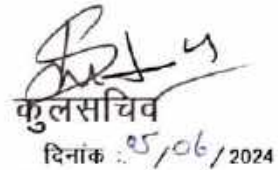 कुलसचिव
दिनांक :- 05/06/2024